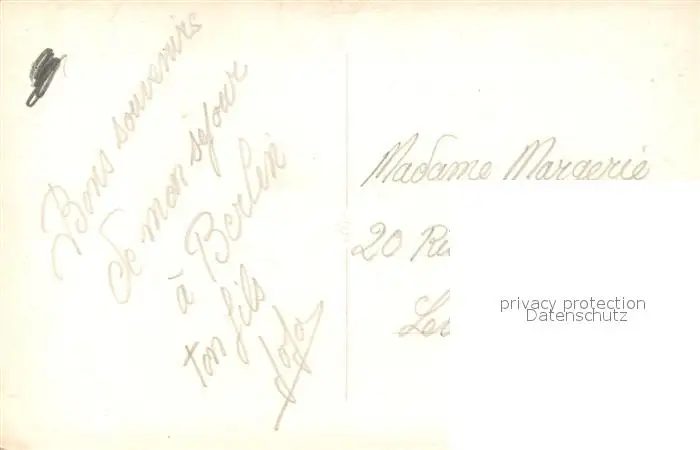 Bons souvenirs
de mon séjour
à Berlin
ton fils
Jojo
Madame Margerie
20 Ru
Les
privacy protection
Datenschutz